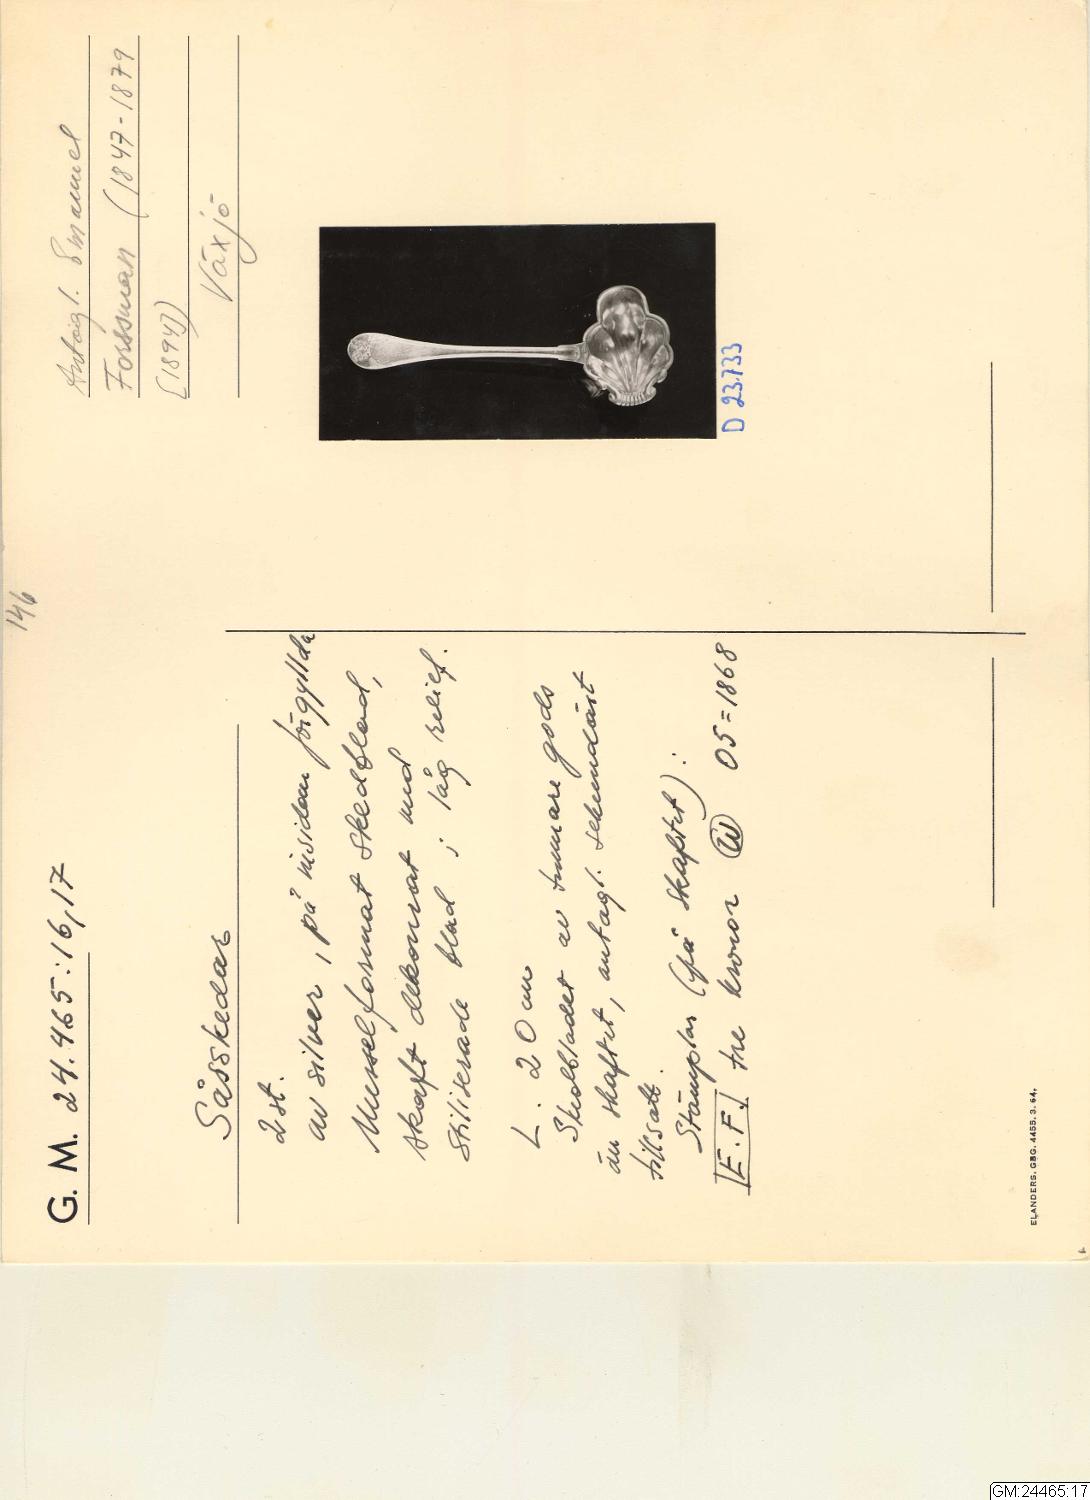 146
G. M. 24.465:16,17
Antagl. Emanuel
Forssman (1847-1879
[1894])
Växjö
Såsskedar
2 st.
av silver, på insidan förgyllda
Musselformat skedblad,
skaft dekorat med
stiliserade blad i låg relief.
L. 20 cm
Skedbladet av tunnare gods
än skaftet, antagl. sekundärt
tillsatt.
Stämplar (på skaftet):
E.F. tre kronor W O5=1868
D 23.733
ELANDERS, GBG. 4455. 3. 64.
GM:24465:17